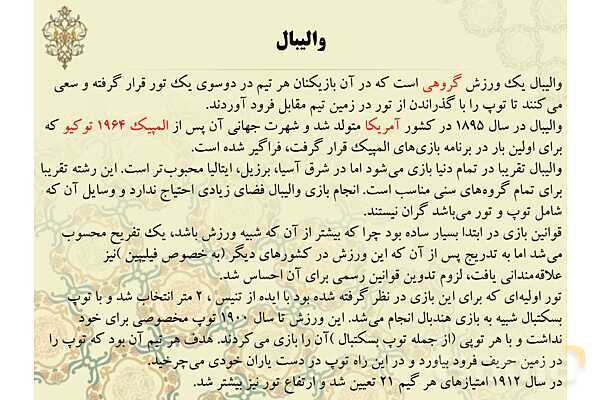 والیبال
والیبال یک ورزش گروهی است که در آن بازیکنان هر تیم در دوسوی یک تور قرار گرفته و سعی
می‌کنند تا توپ را با گذراندن از تور در زمین تیم مقابل فرود آوردند.
والیبال در سال ۱۸۹۵ در کشور آمریکا متولد شد و شهرت جهانی آن پس از المپیک ۱۹۶۴ توکیو که
برای اولین بار در برنامه بازی‌های المپیک قرار گرفت، فراگیر شده است.
والیبال تقریبا در تمام دنیا بازی می‌شود اما در شرق آسیا، برزیل، ایتالیا محبوب‌تر است. این رشته تقریبا
برای تمام گروه‌های سنی مناسب است. انجام بازی والیبال فضای زیادی احتیاج ندارد و وسایل آن که
شامل توپ و تور می‌باشد گران نیستند.
قوانین بازی در ابتدا بسیار ساده بود چرا که بیشتر از آن که شبیه ورزش باشد، یک تفریح محسوب
می‌شد اما به تدریج پس از آن که این ورزش در کشورهای دیگر (به خصوص فیلیپین )نیز
علاقه‌مندانی یافت، لزوم تدوین قوانین رسمی برای آن احساس شد.
تور اولیه‌ای که برای این بازی در نظر گرفته شده بود با ایده از تنیس ، ۲ متر انتخاب شد و با توپ
بسکتبال شبیه به بازی هندبال انجام می‌شد. این ورزش تا سال ۱۹۰۰ توپ مخصوصی برای خود
نداشت و با هر توپی (از جمله توپ بسکتبال )آن را بازی می‌کردند. هدف هر تیم آن بود که توپ را
در زمین حریف فرود بیاورد و در این راه توپ در دست یاران خودی می‌چرخید.
در سال ۱۹۱۲ امتیازهای هر گیم ۲۱ تعیین شد و ارتفاع تور نیز بیشتر شد.